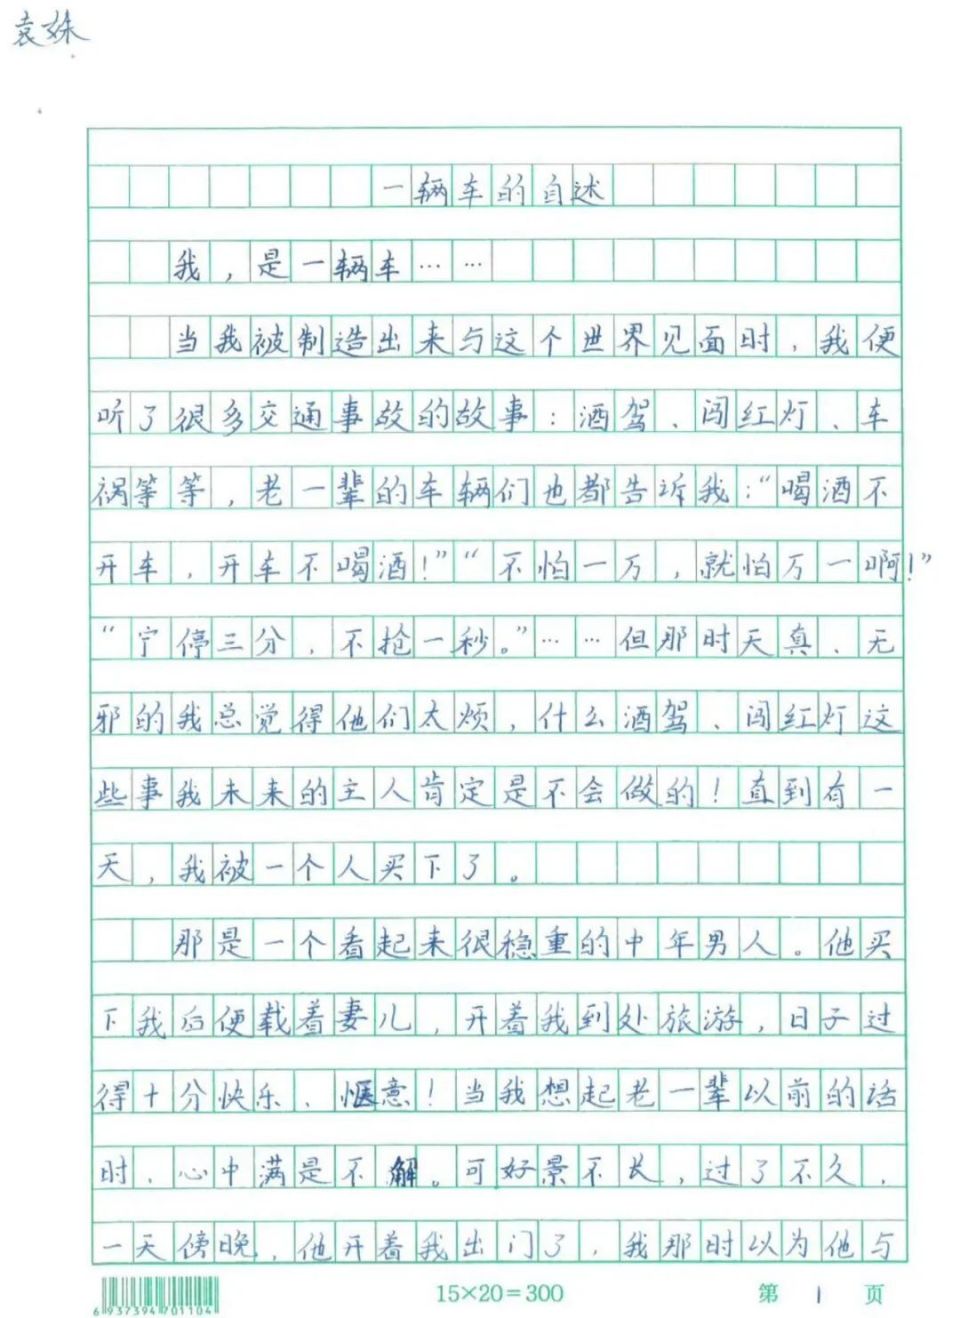 袁姝
一辆车的自述
我，是一辆车……
当我被制造出来与这个世界见面时，我便
听了很多交通事故的故事：酒驾、闯红灯、车
祸等等，老一辈的车辆们也都告诉我：“喝酒不
开车，开车不喝酒！”“不怕一万，就怕万一啊！”
“宁停三分，不抢一秒。”……但那时天真、无
邪的我总觉得他们太烦，什么酒驾、闯红灯这
些事我未来的主人肯定是不会做的！直到有一
天，我被一个人买下了。
那是一个看起来很稳重的中年男人。他买
下我后便载着妻儿，开着我到处旅游，日子过
得十分快乐、惬意！当我想起老一辈以前的话
时，心中满是不解。可好景不长，过了不久，
一天傍晚，他开着我出门了，我那时以为他与
6937394701104
15×20=300
第 1 页